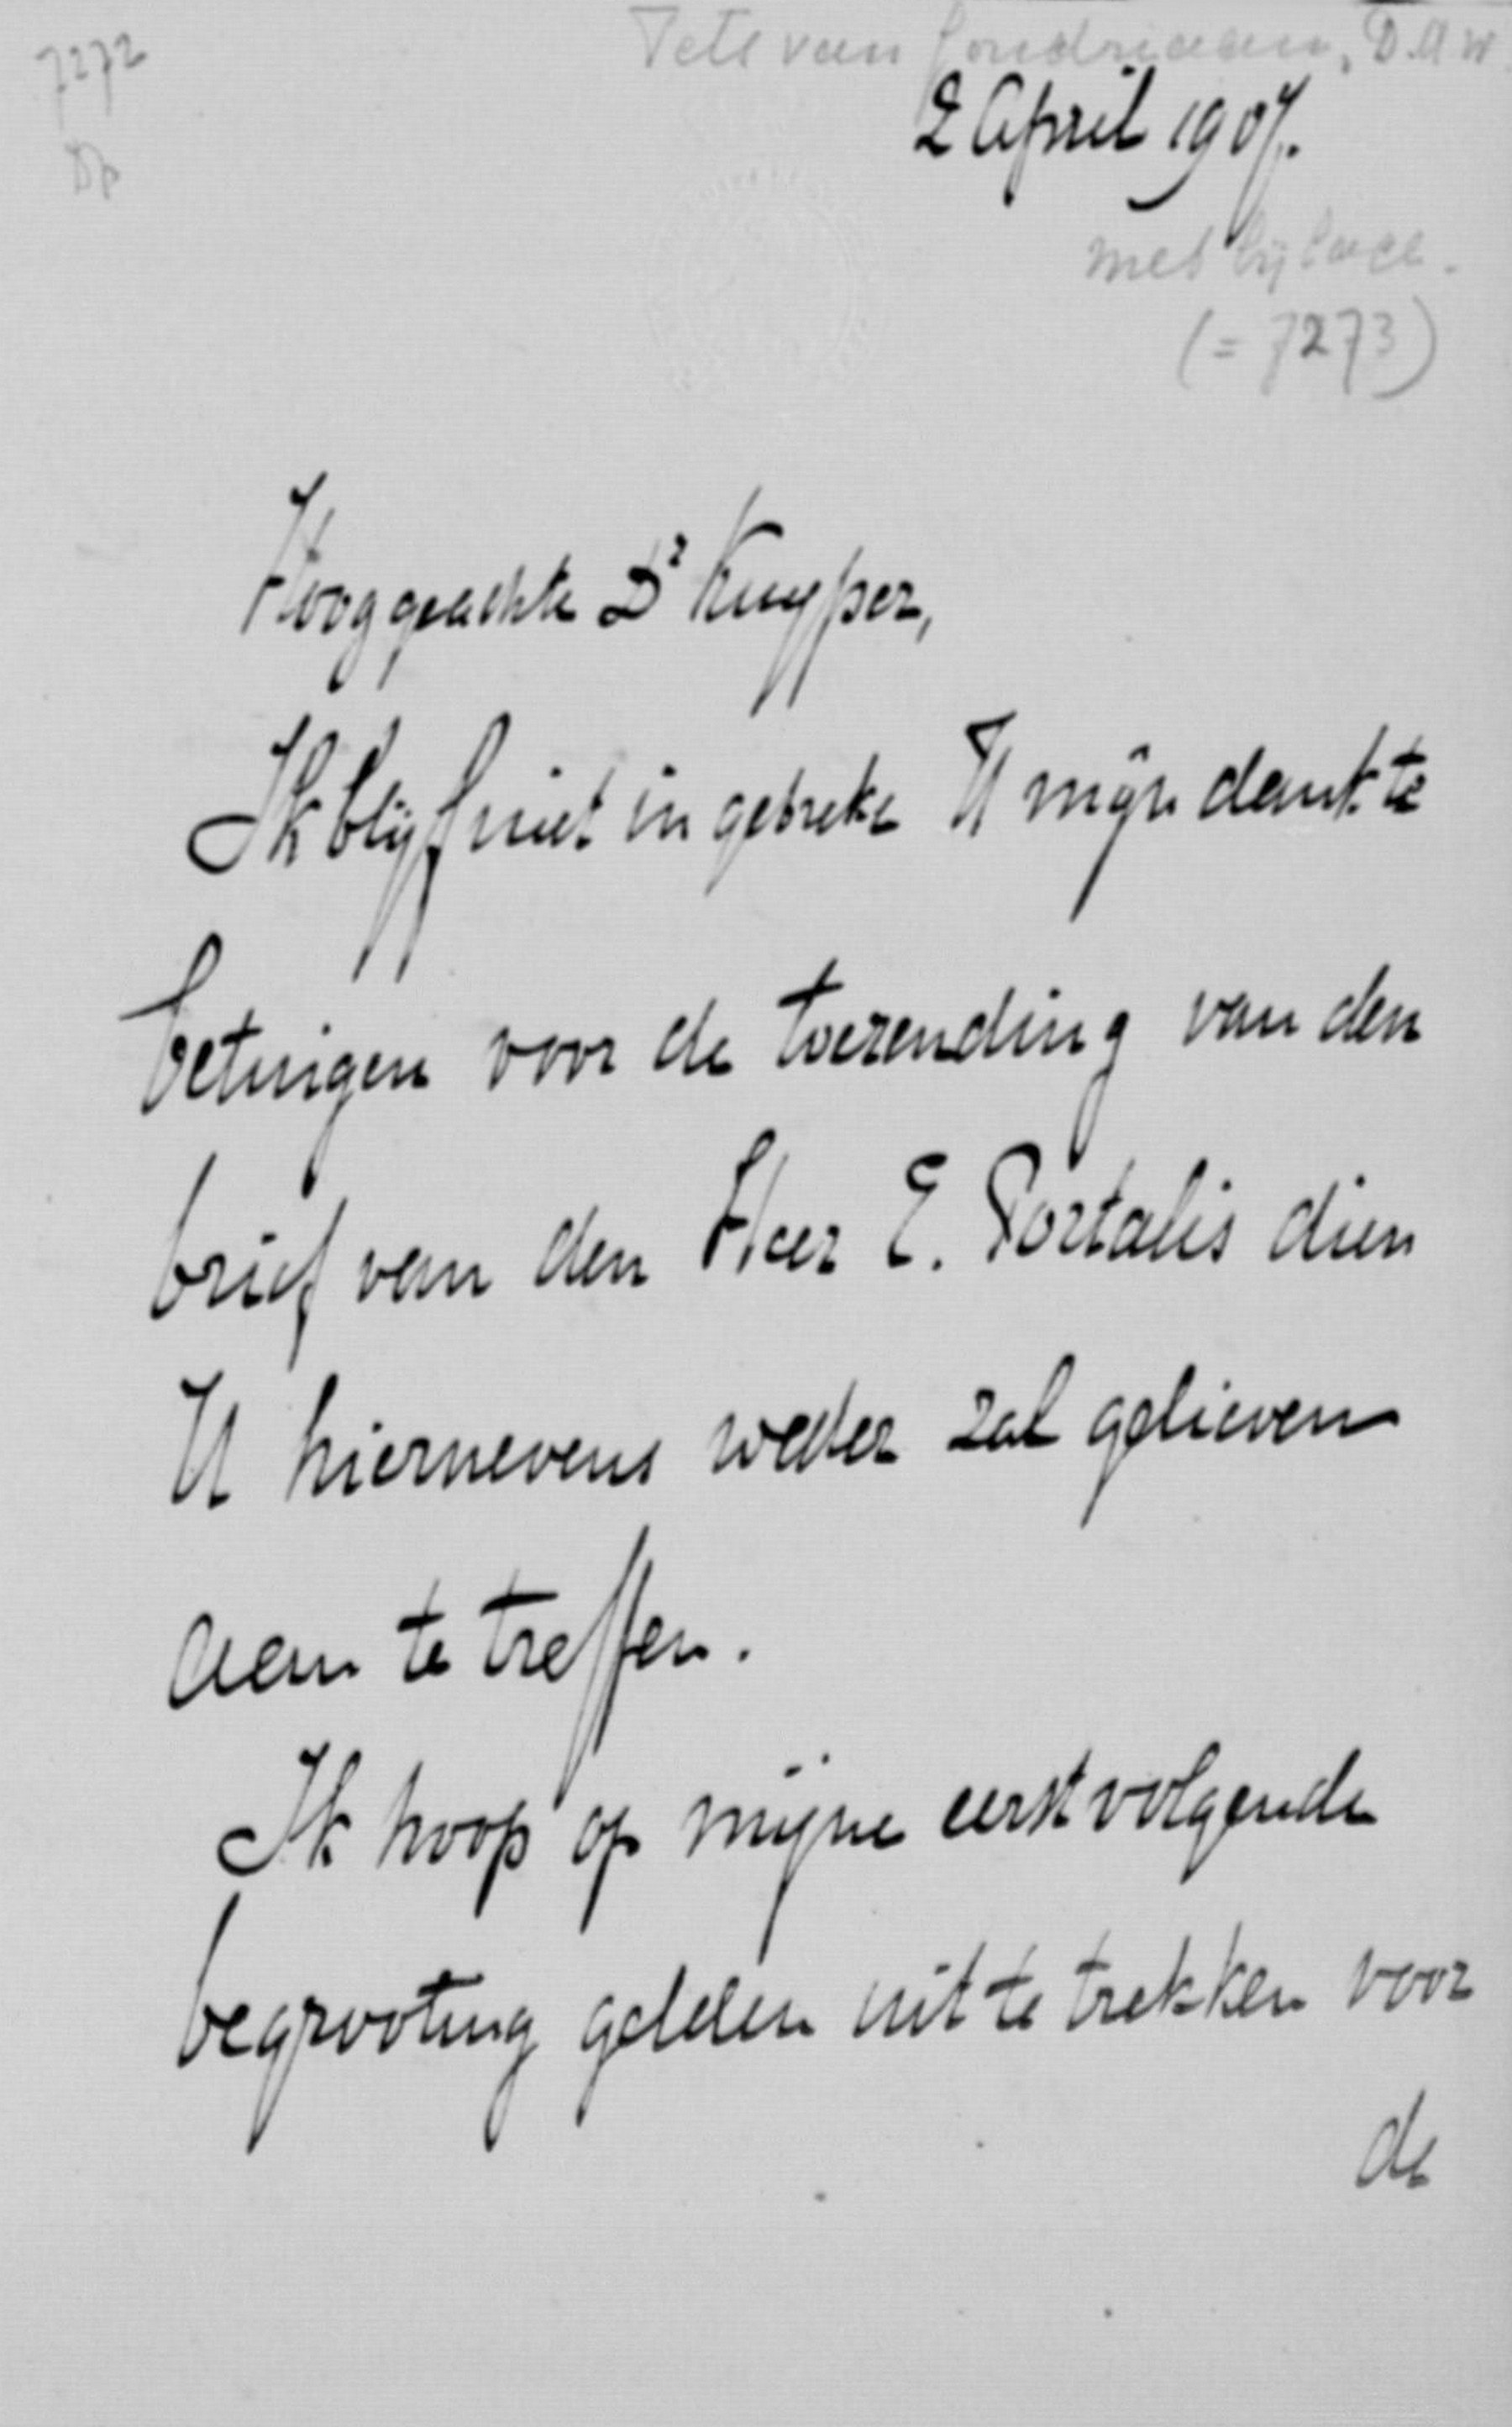 7272
Tets van Goudriaan, D.A.W.
2 April 1907.
Dp
met bijlage.
(= 7273)
Hooggeachte Dr Kuyper,
Ik blijf niet in gebreke U mijn dank te
betuigen voor de toezending van den
brief van den Heer E. Portalis dien
U hiernevens weder zal gelieven
aan te treffen.
Ik hoop op mijne eerstvolgende
begrooting gelden uit te trekken voor
de